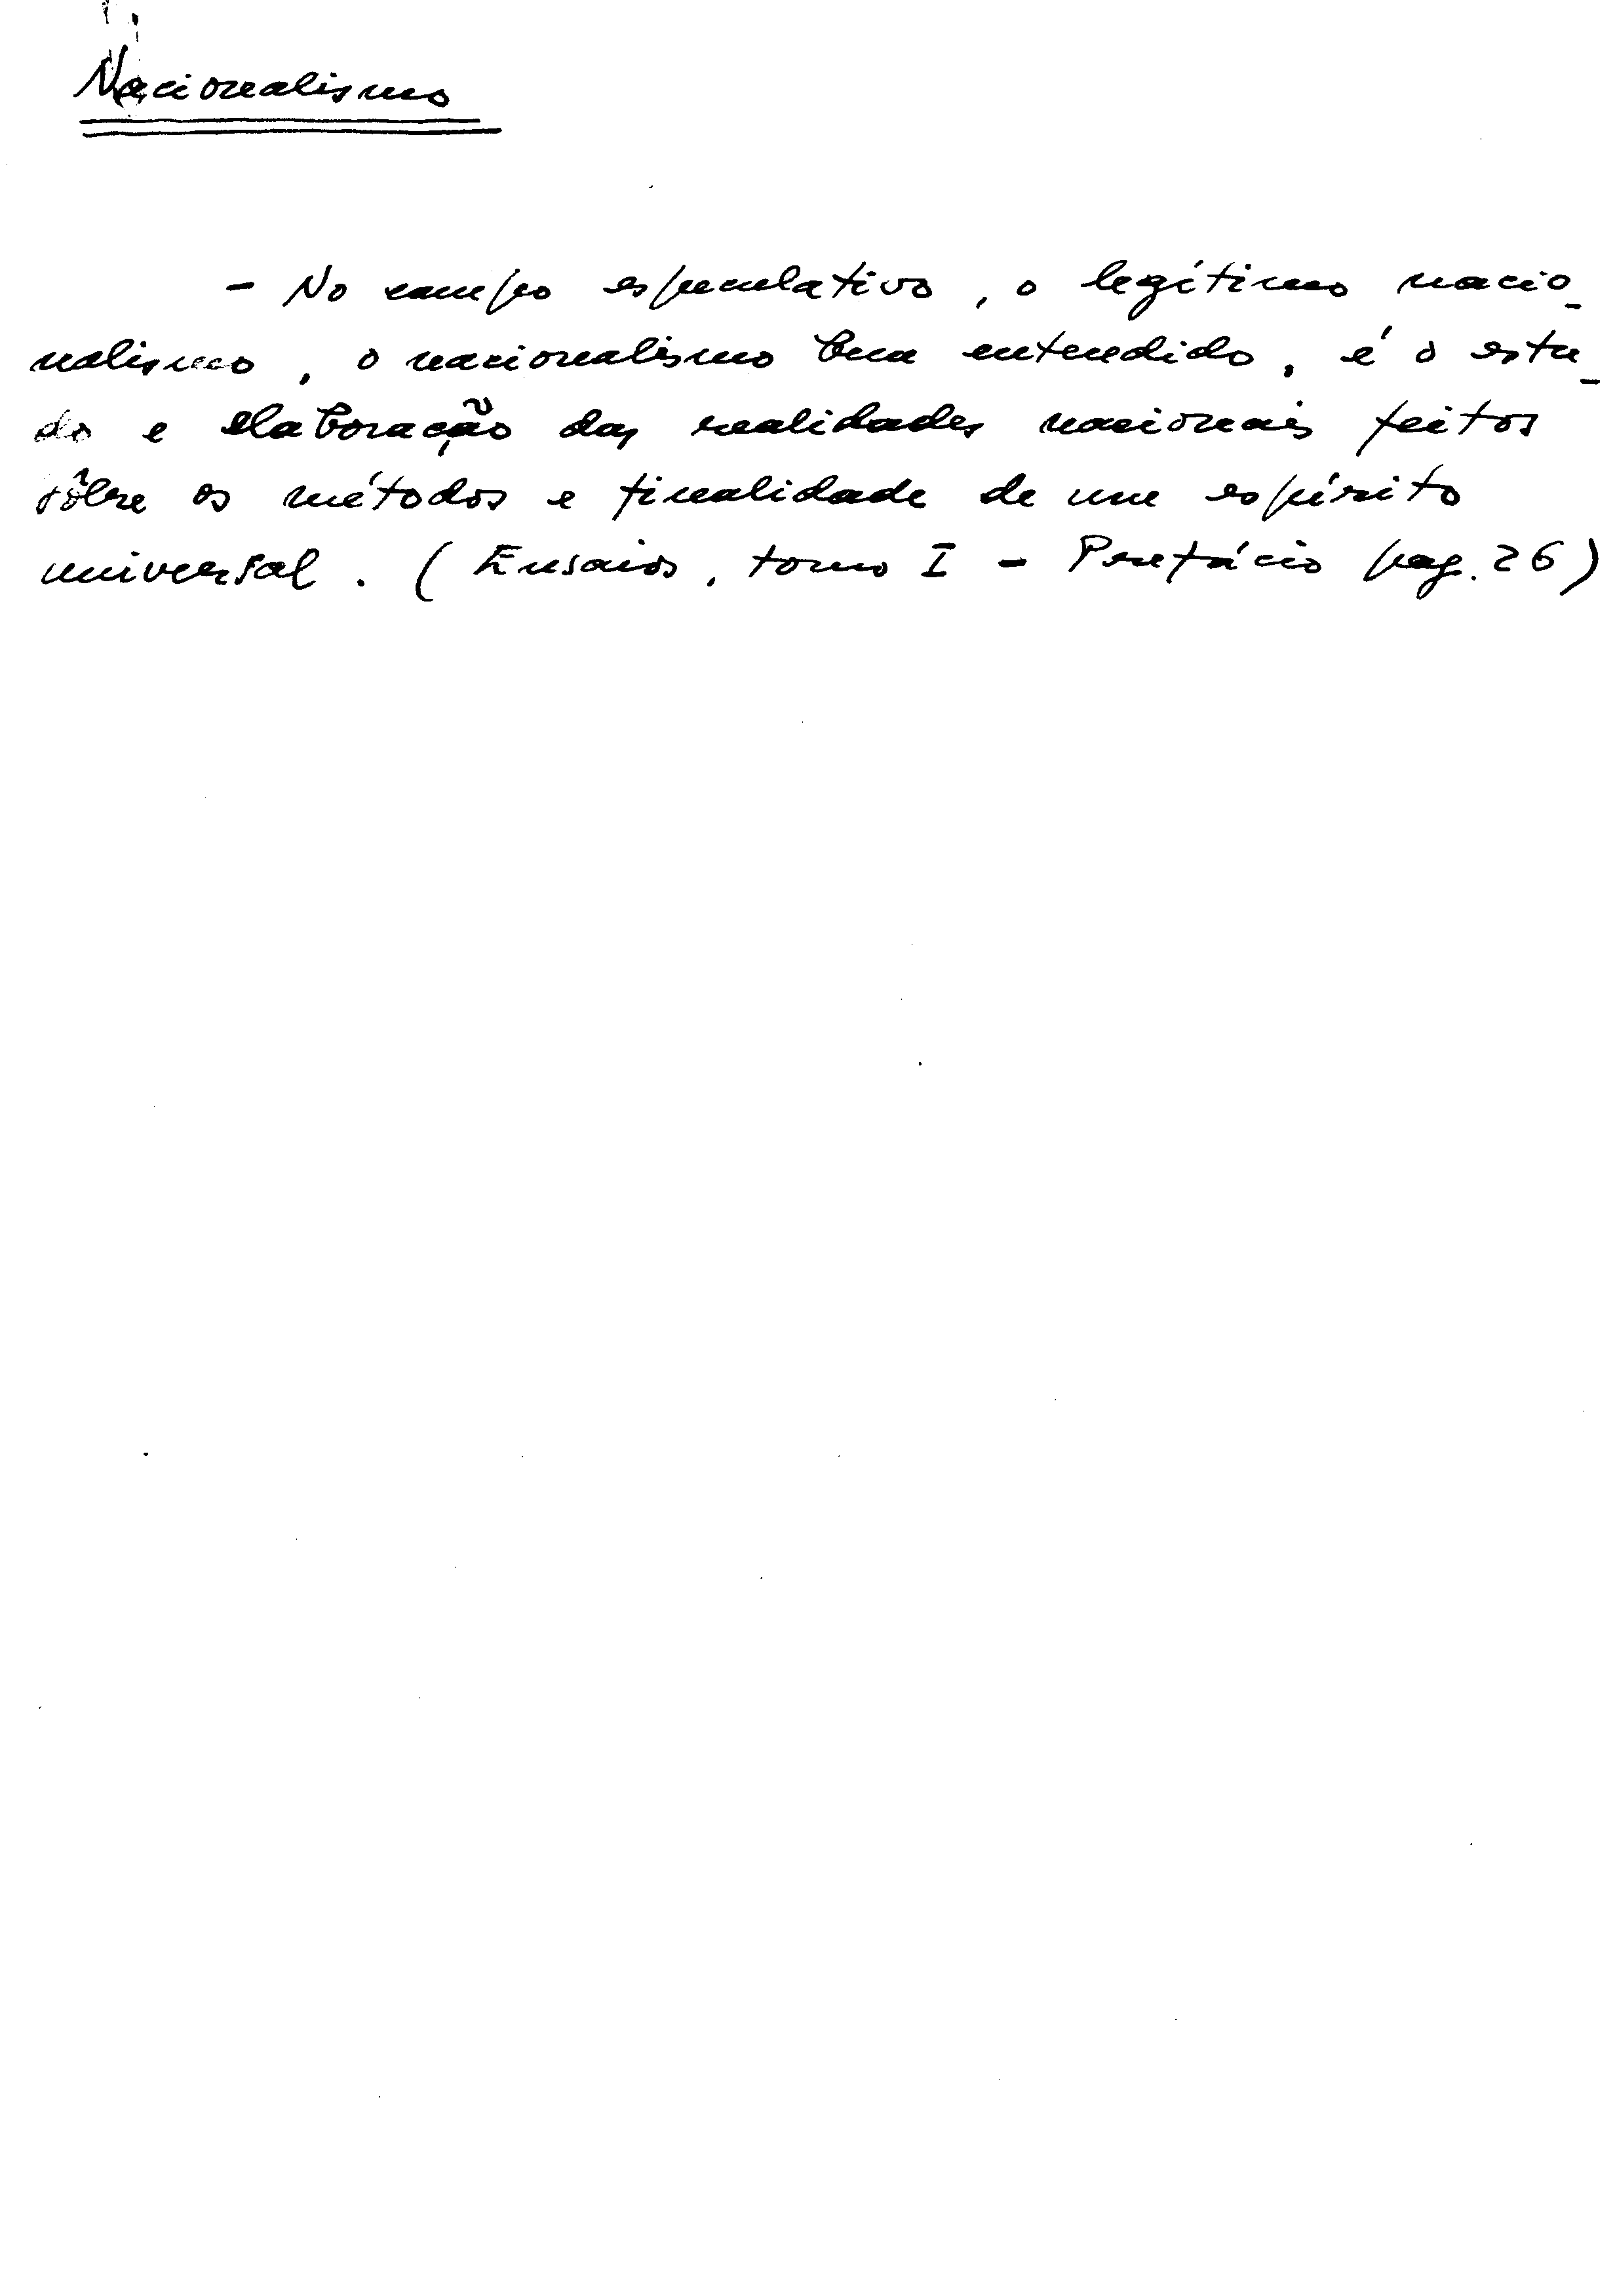 Nacionalismo
- No campo especulativo, o legítimo nacio-
nalismo, o nacionalismo bem entendido, é o estu-
do e elaboração das realidades nacionais feitos
sôbre os métodos e finalidade de um espírito
universal. (Ensaios, tomo I - Prefácio pag. 26)